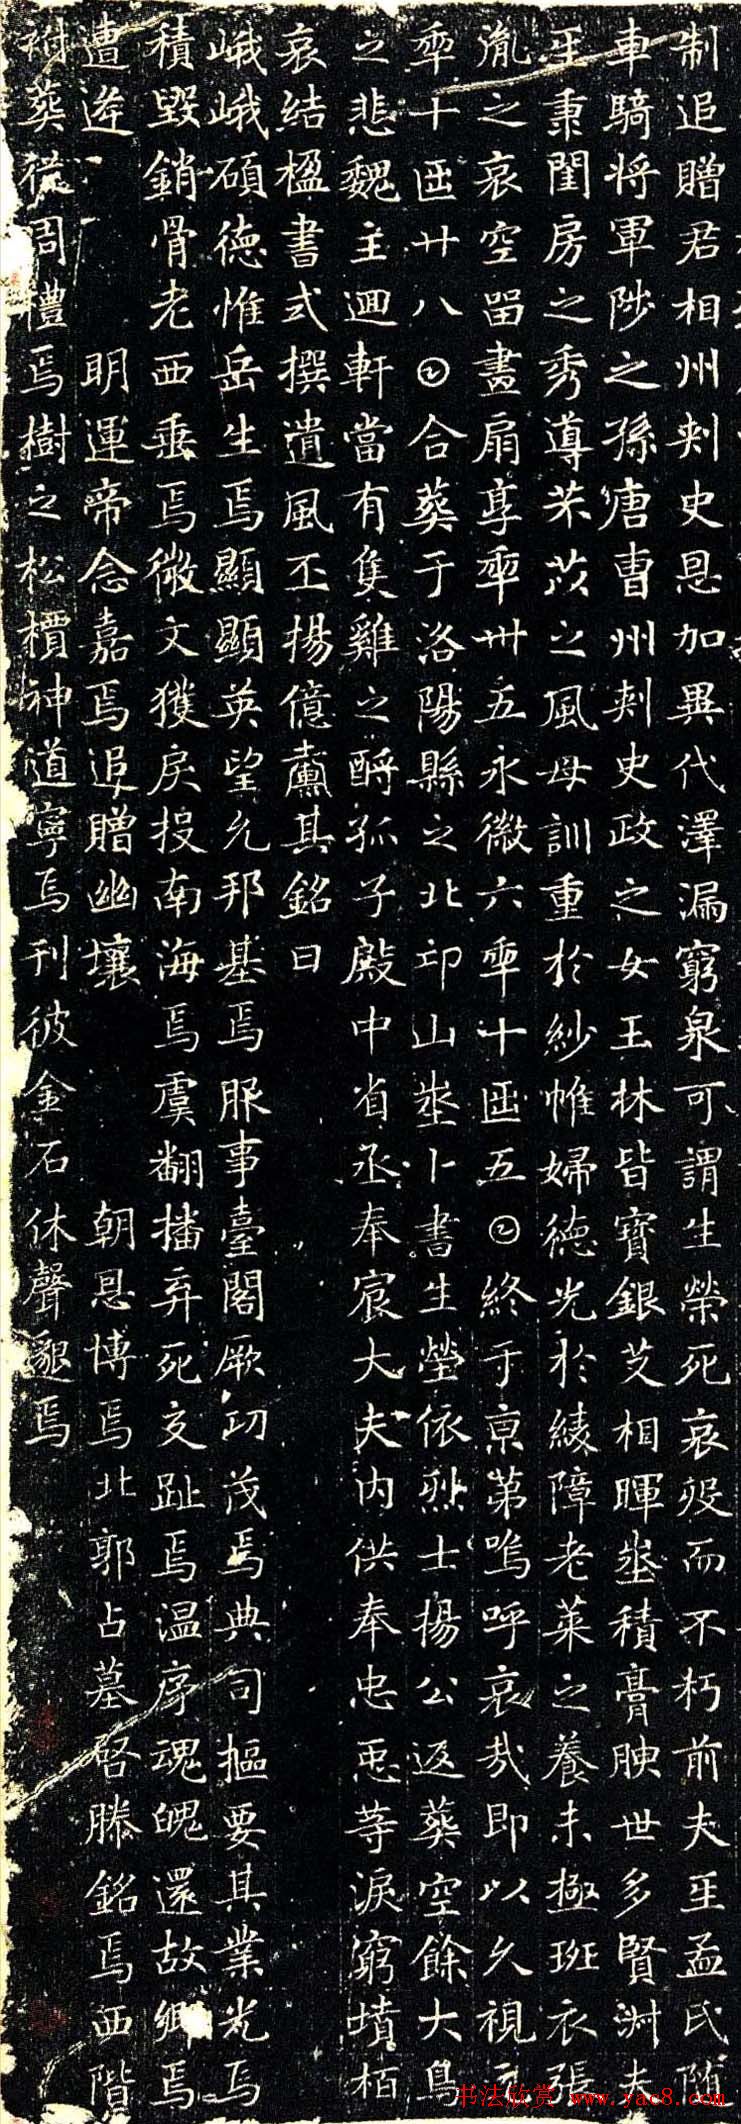 制追贈君相州刾史恩加異代澤漏窮泉可謂生榮死哀歿而不朽前夫𤯔孟氏隋
車騎將軍陟之孫唐曹州刾史政之女玉林皆寶銀艾相暉埊積膏腴世多賢淑夫
𤯔秉閨房之秀導芣苡之風母訓重於紗帷婦德光於綾障老萊之養未極班衣張
胤之哀空留畫扇享𠡦卌五永徽六𠡦十𠥱五𡆠終于京第嗚呼哀哉即以久視元
𠡦十𠥱廿八𡆠合葬于洛陽縣之北邙山埊卜書生塋依烈士楊公返葬空餘大鳥
之悲魏主迴軒當有隻雞之酹孤子殿中省丞奉宸大夫內供奉忠𢘑等淚窮墳栢
哀結楹書式撰遺風丕揚億其銘曰
峨峨碩德惟岳生焉顯顯英望允邦基焉服事臺閣厥功茂焉典司樞要其業光焉
積毀銷骨老西垂焉微文獲戾投南海焉虞翻播弃死交趾焉温序魂魄還故鄉焉
遭逢 明運帝念嘉焉追贈幽壤 朝恩博焉北郭占墓啓滕銘焉西階
祔葬從周禮焉樹之松檟神道寧焉刊彼金石休聲懇焉
书法欣赏 www.yac8.com